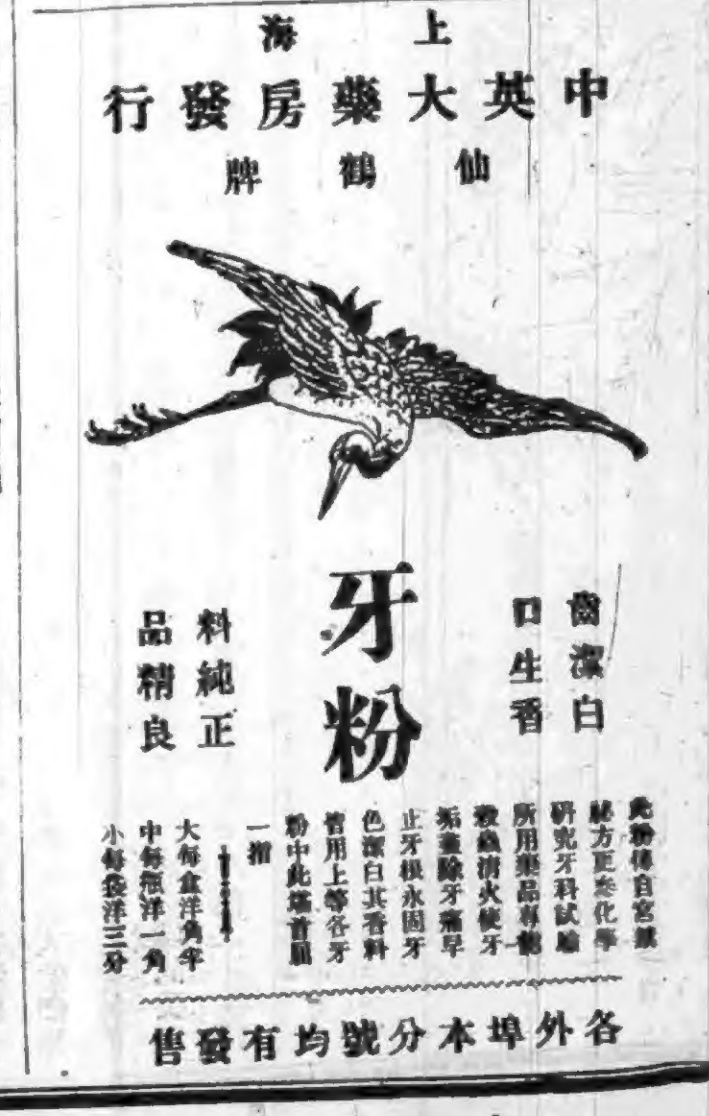 上海
中英大藥房發行
仙鶴牌
牙粉
齒潔白
口生香
料純正
品精良
此粉傳自宮禁
秘方更參化學
研究牙科試驗
所用藥品專能
殺蟲淸火使牙
垢盡除牙痛早
止牙根永固牙
色潔白其香料
皆用上等各牙
粉中此堪首屈
一指
大每盒洋角半
中每瓶洋一角
小每袋洋三分
各外埠本分號均有發售